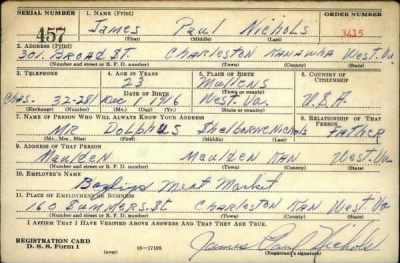 SERIAL NUMBER 1. NAME (Print) ORDER NUMBER
457 James Paul Nichols 3425
(First) (Middle) (Last)
2. ADDRESS (Print)
301 BROAD ST. CHARLESTON KANAWHA WEST. Va.
(Number and street or R. F. D. number) (Town) (County) (State)
3. TELEPHONE 4. AGE IN YEARS 5. PLACE OF BIRTH 6. COUNTRY OF CITIZENSHIP
23 Mullens
DATE OF BIRTH (Town or county)
Chas. 32-281 1 1916 West. Va. U.S.A.
(Exchange) (Number) (Mo.) (Day) (Yr.) (State or country)
7. NAME OF PERSON WHO WILL ALWAYS KNOW YOUR ADDRESS 8. RELATIONSHIP OF THAT PERSON
MR Dolphus Shelborne Nichols FATHER
(Mr., Mrs., Miss) (First) (Middle) (Last)
9. ADDRESS OF THAT PERSON
Maulden Maulden KAN West. Va.
(Number and street or R. F. D. number) (Town) (County) (State)
10. EMPLOYER'S NAME
Meat Market
11. PLACE OF EMPLOYMENT OR BUSINESS
160 Summers. St. CHARLESTON KAN West Va
(Number and street or R. F. D. number) (Town) (County) (State)
I AFFIRM THAT I HAVE VERIFIED ABOVE ANSWERS AND THAT THEY ARE TRUE.
REGISTRATION CARD
D. S. S. Form 1 (over) 16-17105 James Paul Nichols
(Registrant's signature)